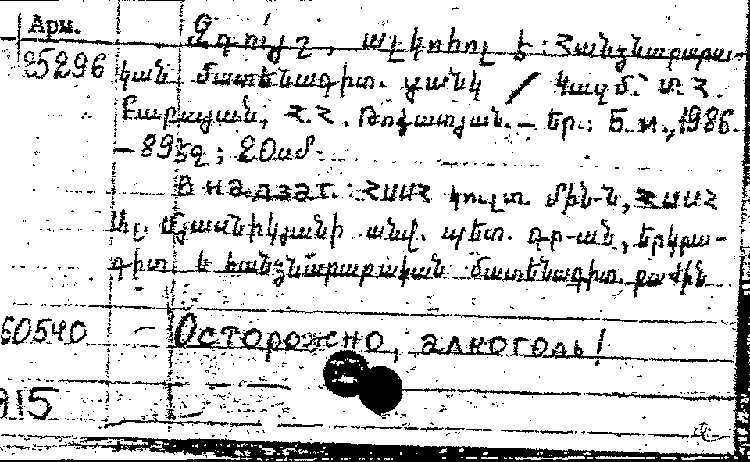 Арм.
Զգույշ, ալկոհոլ է: Հանձնարարա-
25296 կան մատենագիտ. ցանկ / Կազմ.՝ Մ. Հ.
Բաբայան, Հ. Հ. Թոփատյան. – Եր.: Б. и., 1986.
– 89 էջ; 20 սմ.
В надзаг.: ՀՍՍՀ կուլտ. մին-ն, ՀՍՍՀ
Ալ. Մյասնիկյանի անվ. պետ. գր-ան, երկրա-
գիտ. և հանձնարարական մատենագիտ. բաժին
60540 – Осторожно, алкоголь!
915